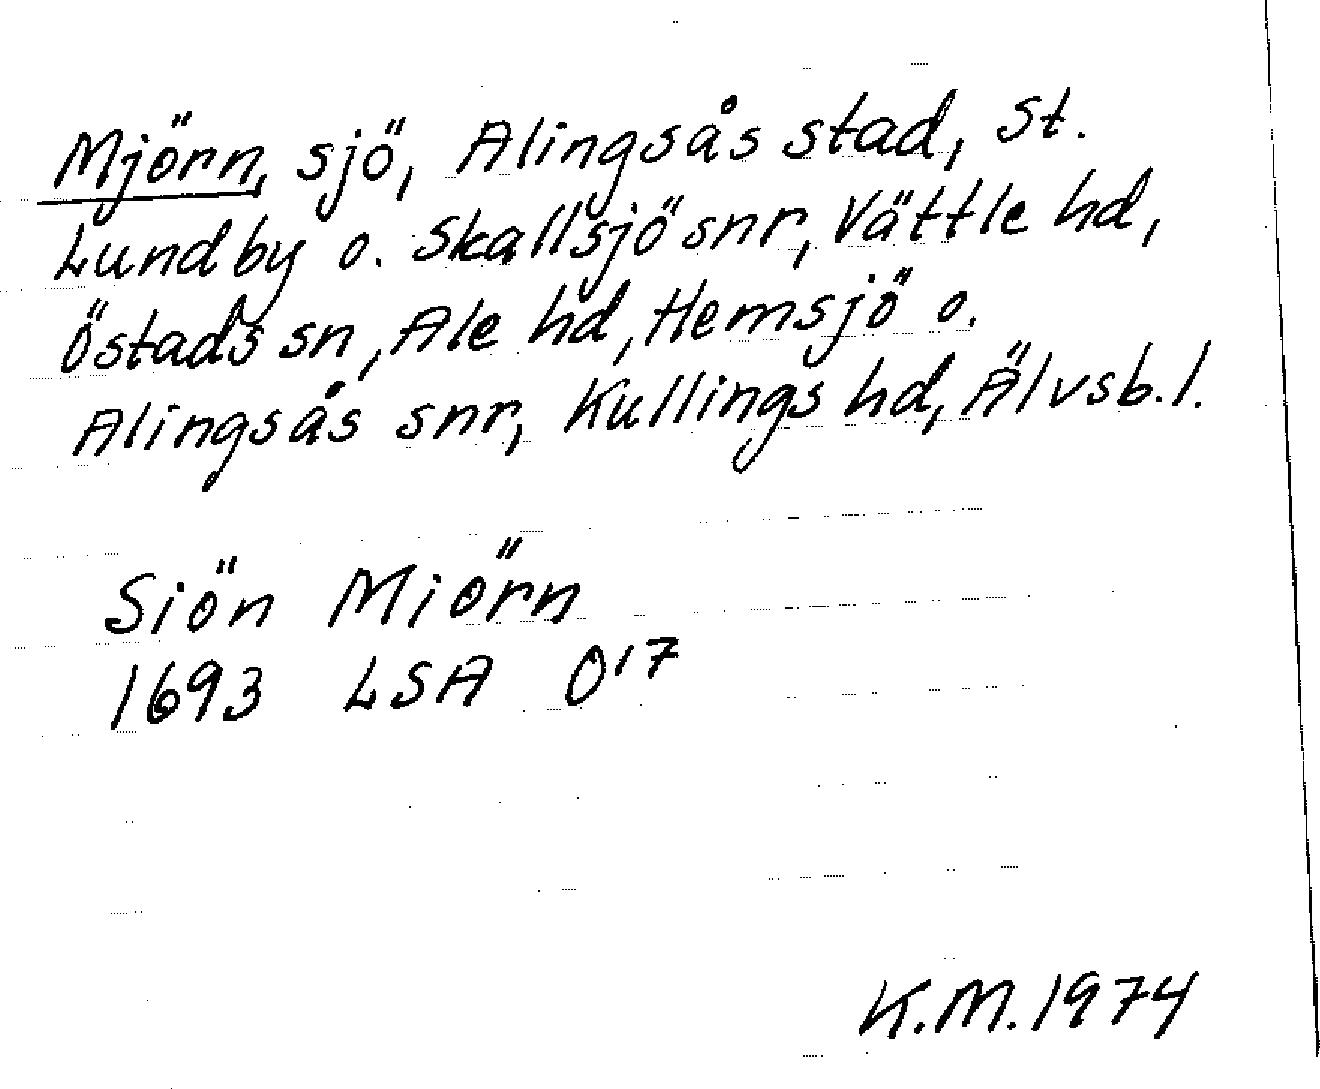 Mjörn, sjö, Alingsås stad, St.
Lundby o. Skallsjö snr, Vättle hd,
Östads sn, Ale hd, Hemsjö o.
Alingsås snr, Kullings hd, Älvsb. l.
Siön Miörn
1693 LSA O17
K.M. 1974